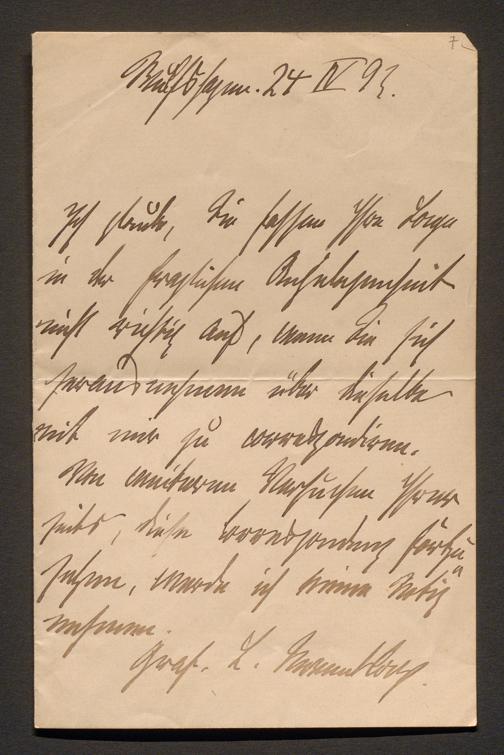 24 IV 93.
Ich glaube, Sie fassen Ihre Lage
in der fraglichen Angelegenheit
nicht richtig auf, wenn Sie sich
herausnehmen über dieselbe
mit mir zu correspondiren.
Von weiteren Versuchen Ihrer
seits, diese Correspondenz fortzu
setzen, werde ich keine Notiz
nehmen.
Graf. L.